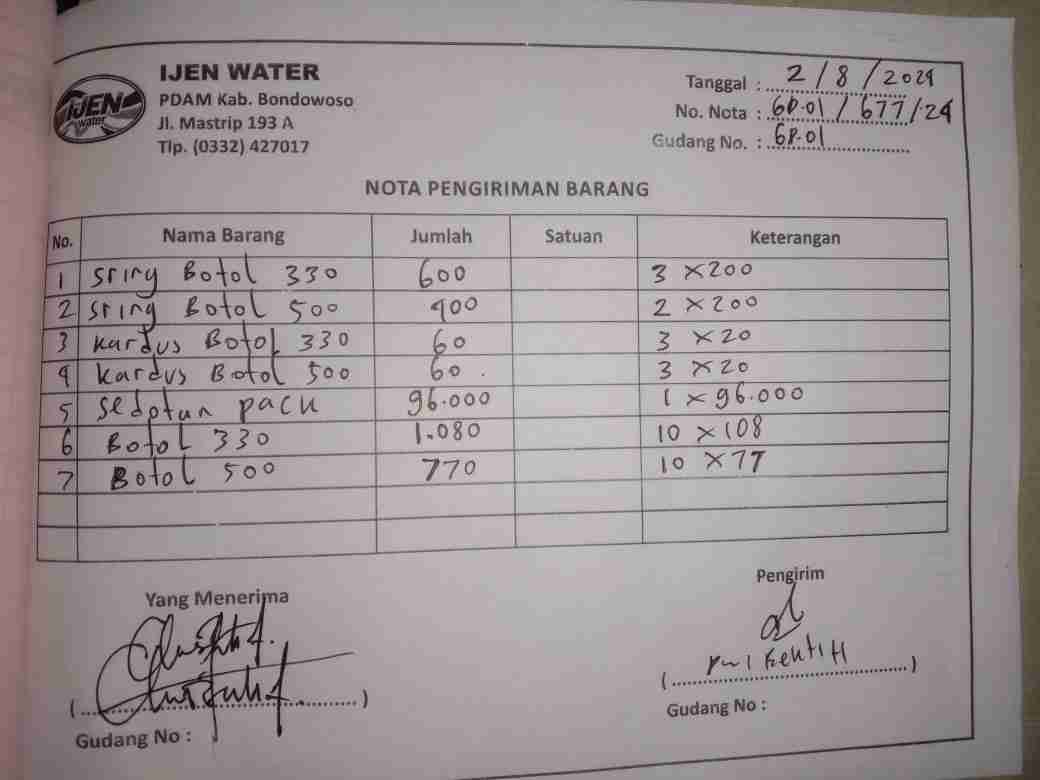 IJEN WATER
PDAM Kab. Bondowoso
Jl. Mastrip 193 A
Tlp. (0332) 427017
IJEN water
Tanggal : 2 / 8 / 2024
No. Nota : 6P.01 / 677 / 24
Gudang No. : 6P.01
NOTA PENGIRIMAN BARANG
No. Nama Barang Jumlah Satuan Keterangan
1 sring Botol 330 600 3 x 200
2 sring Botol 500 400 2 x 200
3 kardus Botol 330 60 3 x 20
4 kardus Botol 500 60 . 3 x 20
5 sedotan pack 96.000 1 x 96.000
6 Botol 330 1.080 10 x 108
7 Botol 500 770 10 x 77
Yang Menerima
Pengirim
Gudang No :
Gudang No :